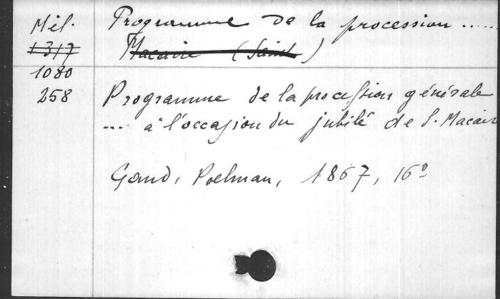 Mél.
1317
1080
258
Programme de la procession ......
Macaire (Saint)
Programme de la procession générale
... à l'occasion du jubilé de S. Macaire
Gand, Poelman, 1867, 16°